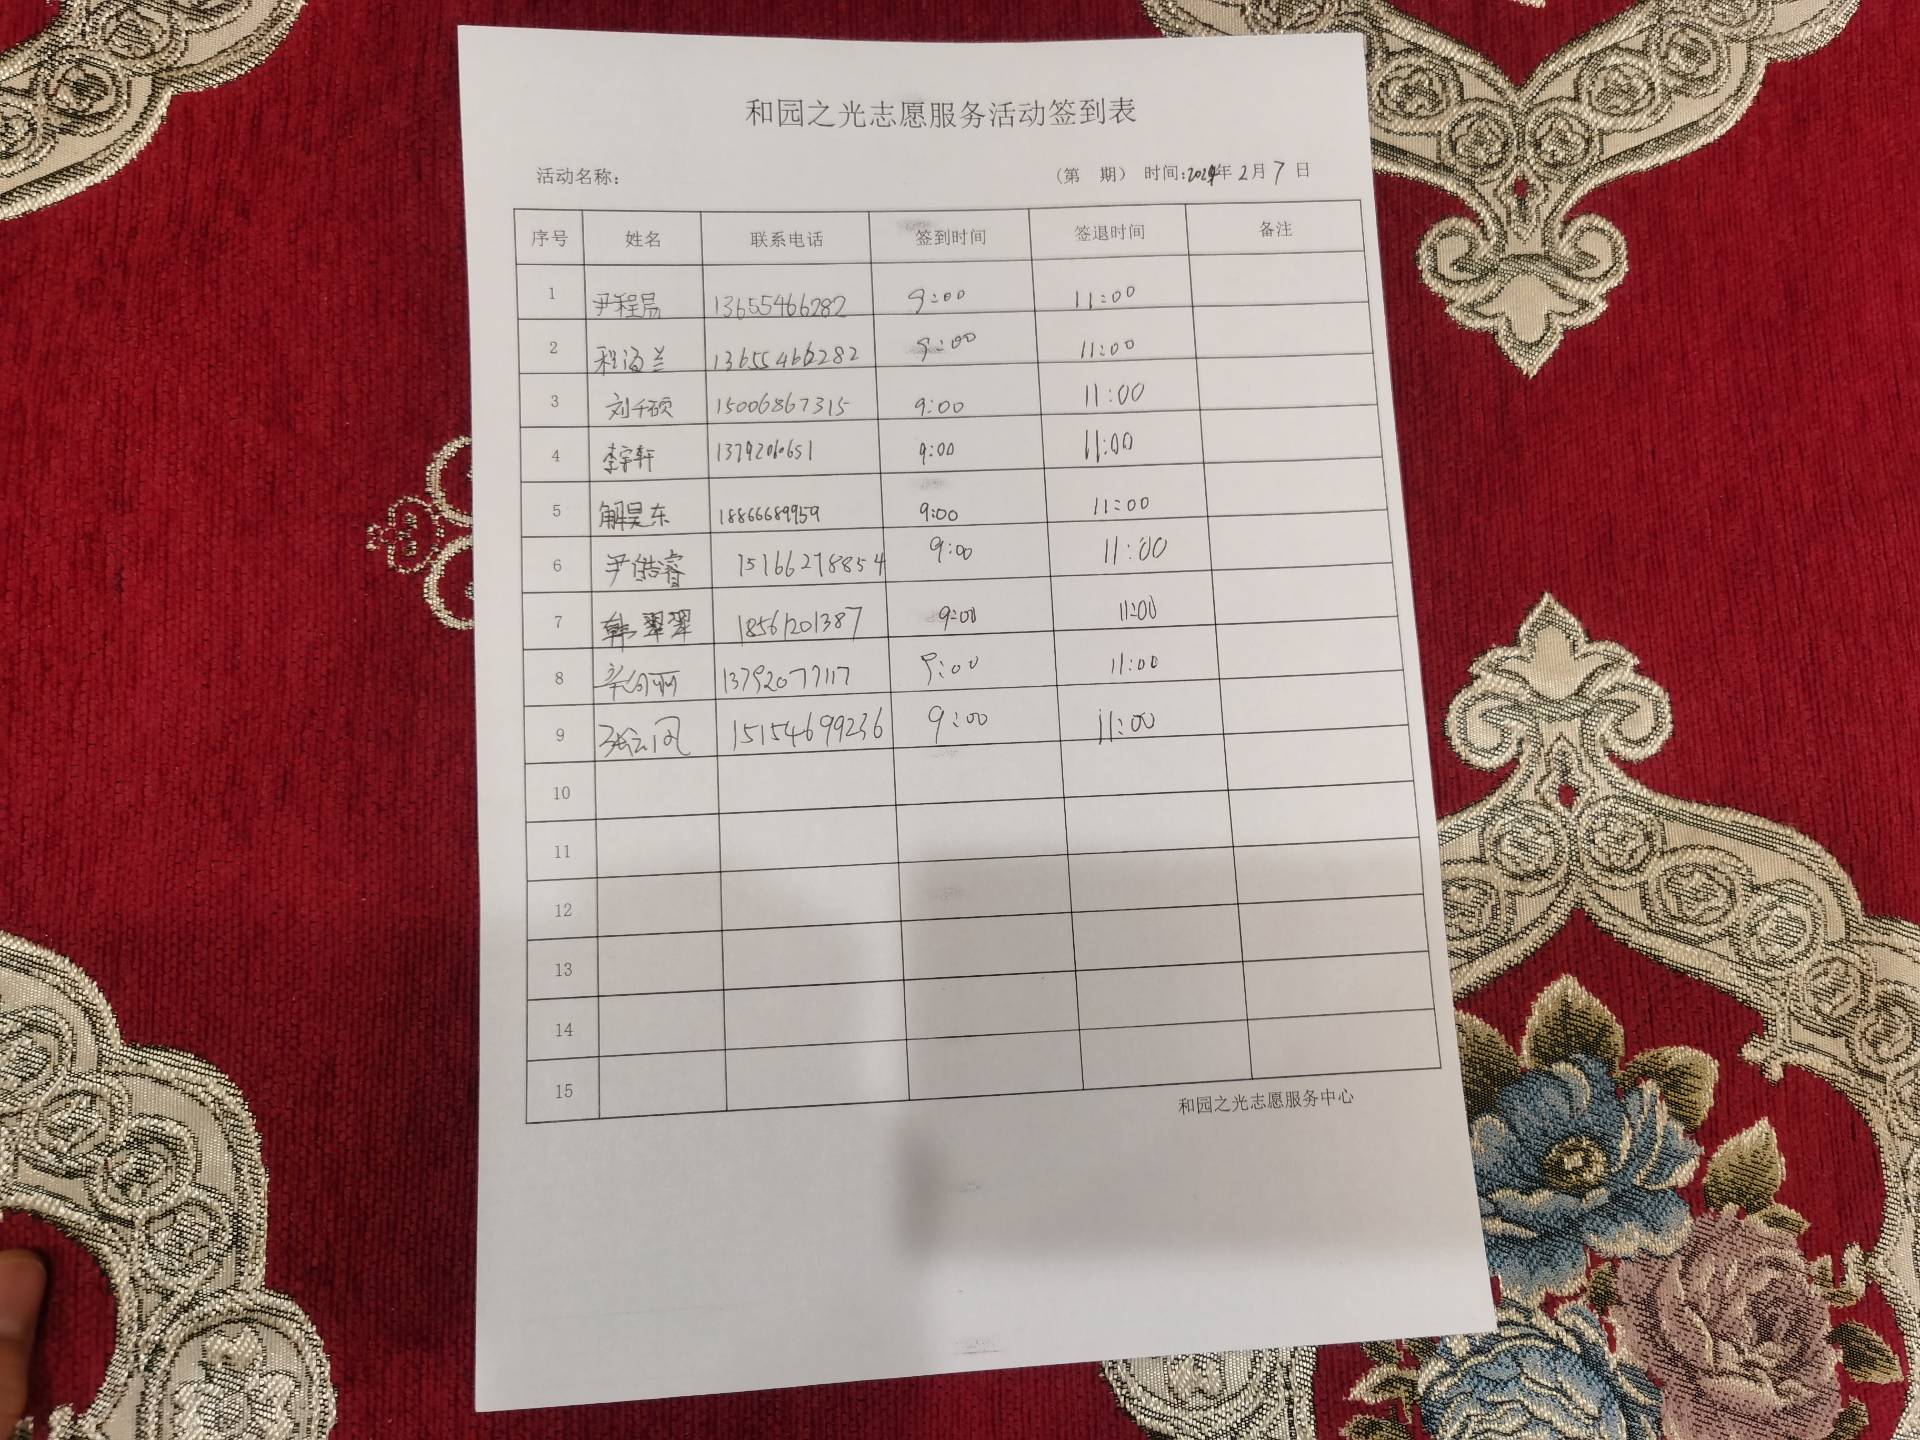 和园之光志愿服务活动签到表
活动名称： （第 期） 时间:2024年 2月 7 日
序号 姓名 联系电话 签到时间 签退时间 备注
1 尹程易 13655466282 9:00 11:00
2 程海兰 13655466282 9:00 11:00
3 刘千硕 15006867315 9:00 11:00
4 李宇轩 1379206651 9:00 11:00
5 解昊东 18866689959 9:00 11:00
6 尹皓睿 15166278854 9:00 11:00
7 韩翠翠 18561201387 9:00 11:00
8 13792077117 9:00 11:00
9 张云凤 15154699236 9:00 11:00
10
11
12
13
14
15
和园之光志愿服务中心